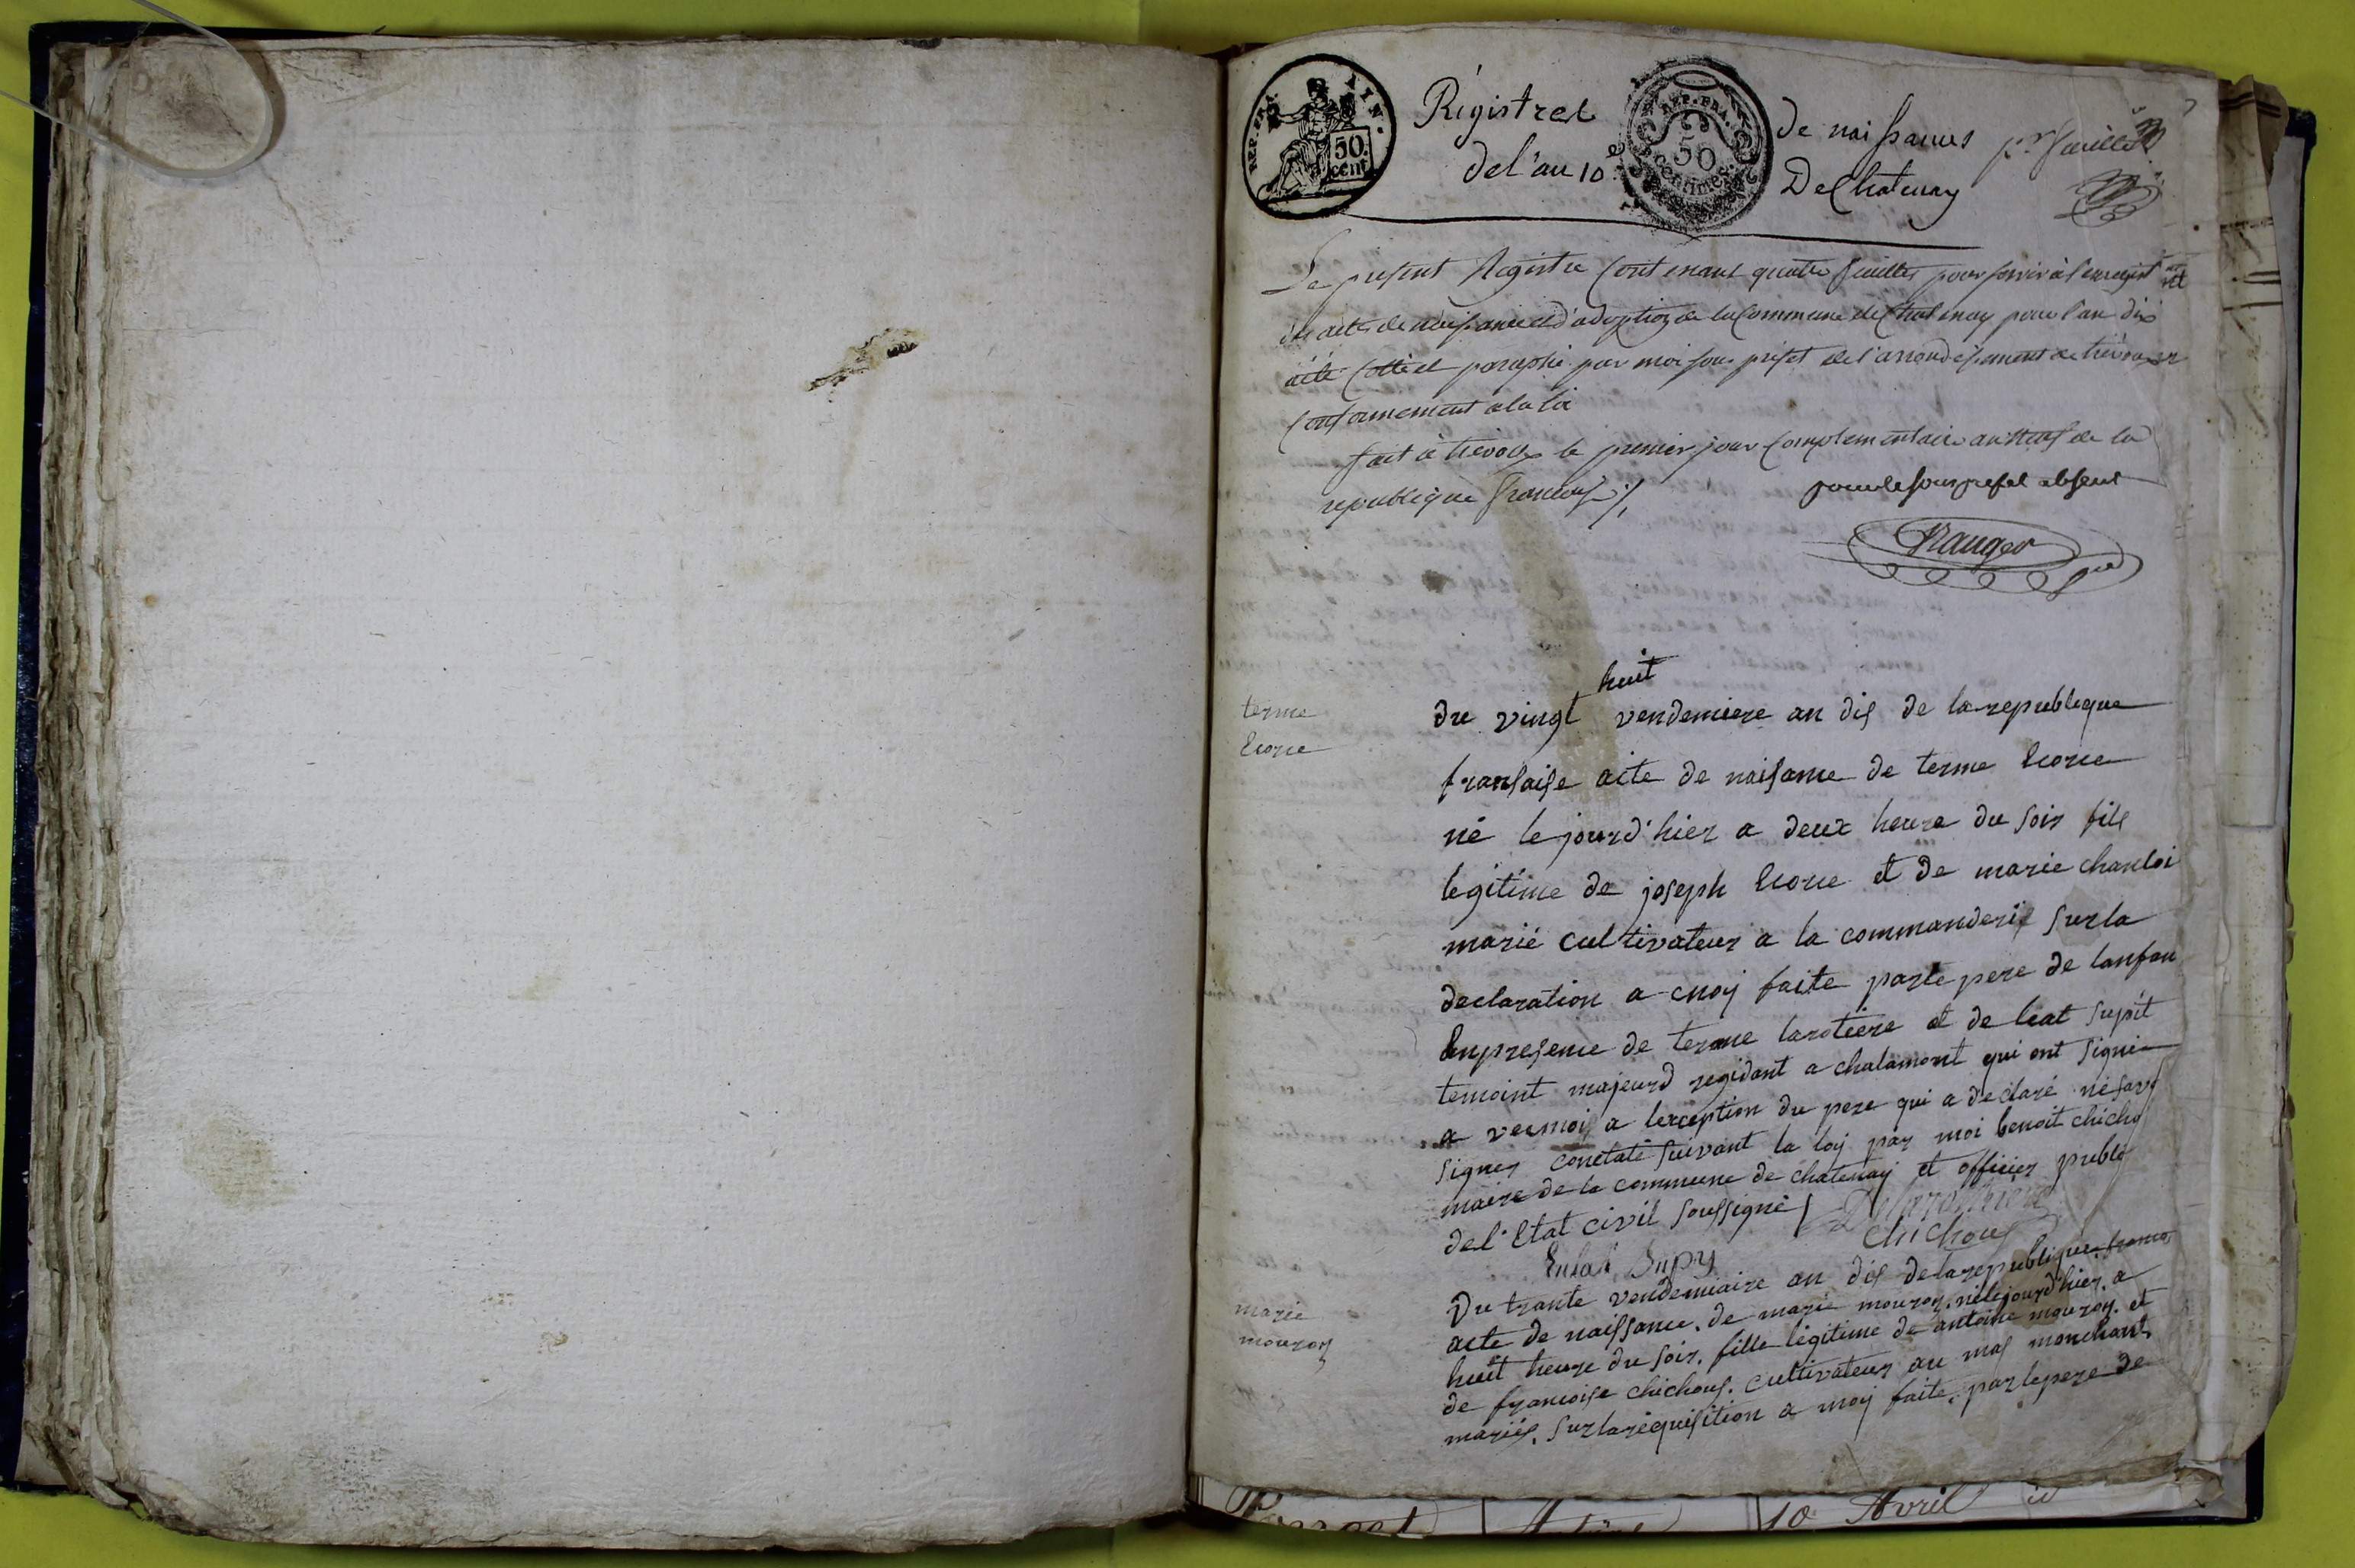 REP. FRA.
50.
cent
AIN.
REP. FRA.
50
centimes
Régistres
del'an 10e
De naissances
De Chatenay
Le present Registre Contenant quatre feuilles pour servir à l'enregistrement
des actes de naissance et d'adoption de la Commune de Chatenay pour l'an dix
été Cotté et paraphé par moi sous prefet de l'arrondissement de trévoux
Conformement a la loi
fait à trévoux le premier jour Complementaire an neuf de la
republique francaise
pour le sous prefet absent
terme
Ecorce
du vingt huit vendemiere an dis de la republique
fransaise acte de naisance de terme Ecorce
né le jourd'hier a deux heure du soir fils
legitime de joseph Ecorce et de marie
marié cultivateur a la commanderie sur la
declaration a moy faite par le pere de lanfan
En presence de terme larotiere et de leat supit
temoint majeurd residant a chalamont qui ont signé
a vec moi a lexception du pere qui a declaré ne savo
signer constaté suivant la loy par moi benoit chicho
maire de la commune de chatenay et officier public
de l'Etat civil soussigné
chichous
Supy
marie
mouron
Du trante vendemiaire an dis de la republique
acte de naissance. de marie mouron. né le jourd'hier. a
huit heure du soir. fille légitime de antoine mouron. et
de francoise chichous. cultivateur au mas monchant
mariés. sur la réquisition a moy faite. par le pere de
10 Avril